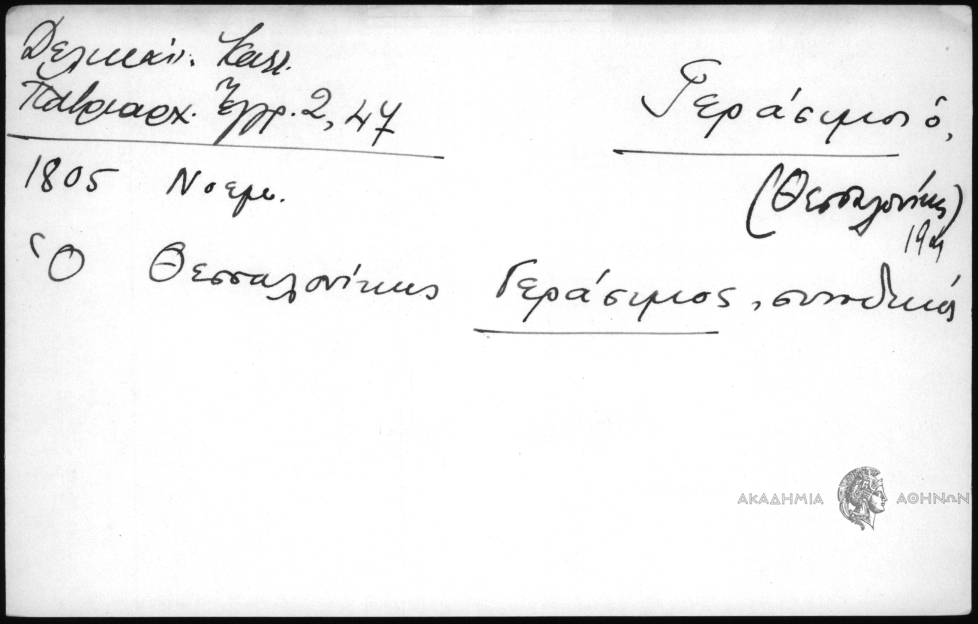 Δελικάν. Καλλ.
Πατριαρχ. Ἔγγρ. 2, 47
Γεράσιμος ὁ,
(Θεσσαλονίκης)
19ος
1805 Νοεμ.
Ὁ Θεσσαλονίκης Γεράσιμος, συνοδικός
ΑΚΑΔΗΜΙΑ ΑΘΗΝΩΝ